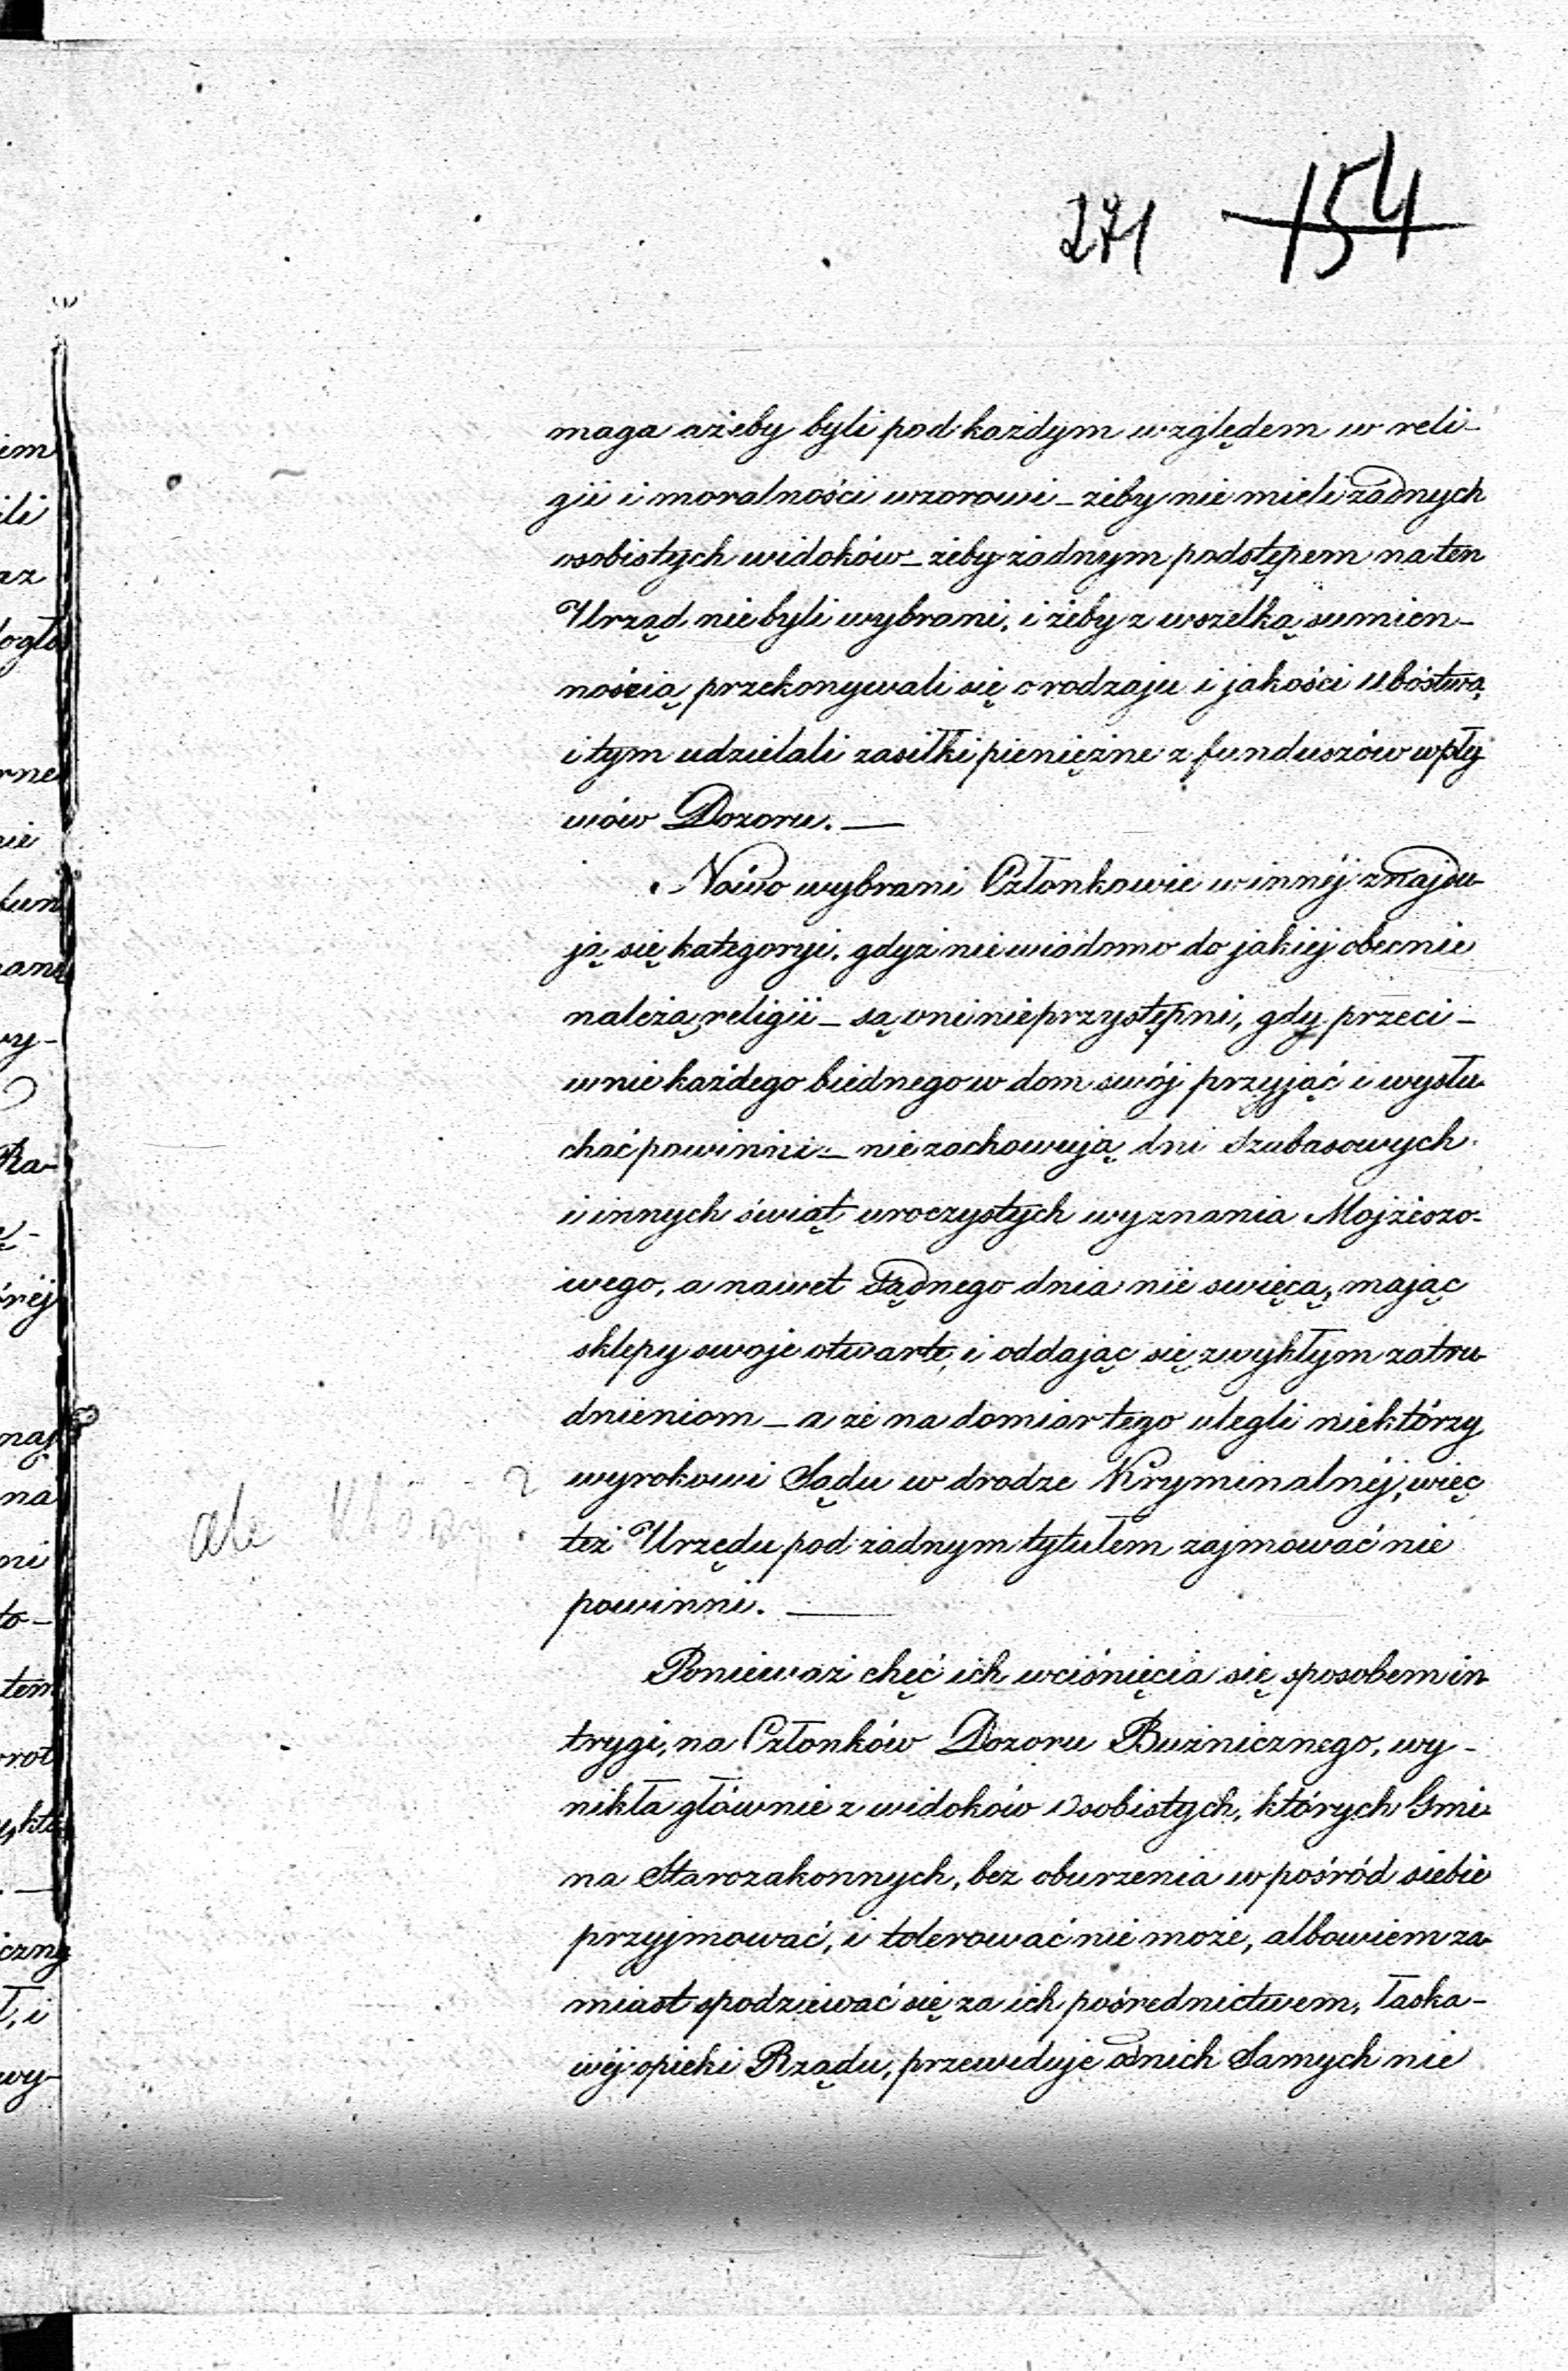 271 154
maga ażeby byli pod każdym względem w reli-
gii i moralności wzorowi – żeby nie mieli żadnych
osobistych widoków – żeby żadnym podstępem na ten
Urząd nie byli wybrani, i żeby z wszelką sumien-
nością przekonywali się o rodzaju i jakości ubóstwa,
i tym udzielali zasiłki pieniężne z funduszów wpły
wów Dozoru. —
Nowo wybrani Członkowie w innéj znajdu-
ją się kategoryi, gdyż nie wiadomo do jakiej obecnie
należą religii – są oni nieprzystępni, gdy przeci-
wnie każdego biednego w dom swój przyjąć i wysłu-
chać powinni – nie zachowują dni Szabasowych
i innych świąt uroczystych wyznania Mojżeszo-
wego, a nawet Sądnego dnia nie swięcą, mając
sklepy swoje otwarte, i oddając się zwykłym zatru-
dnieniom – a że na domiar tego ulegli niektórzy
wyrokowi Sądu w drodze Kryminalnéj, więc
też Urzędu pod żadnym tytułem zajmować nie
powinni. —
ale którzy ?
Ponieważ chęć ich wciśnięcia się sposobem in-
trygi, na Członków Dozoru Bużnicznego, wy-
nikła głównie z widoków osobistych, których Gmi-
na Starozakonnych, bez oburzenia w pośród siebie
przyjmować, i tolerować nie może, albowiem za-
miast spodziewać się za ich pośrednictwem, łaska-
wéj opieki Rządu, przewiduje od nich Samych nie